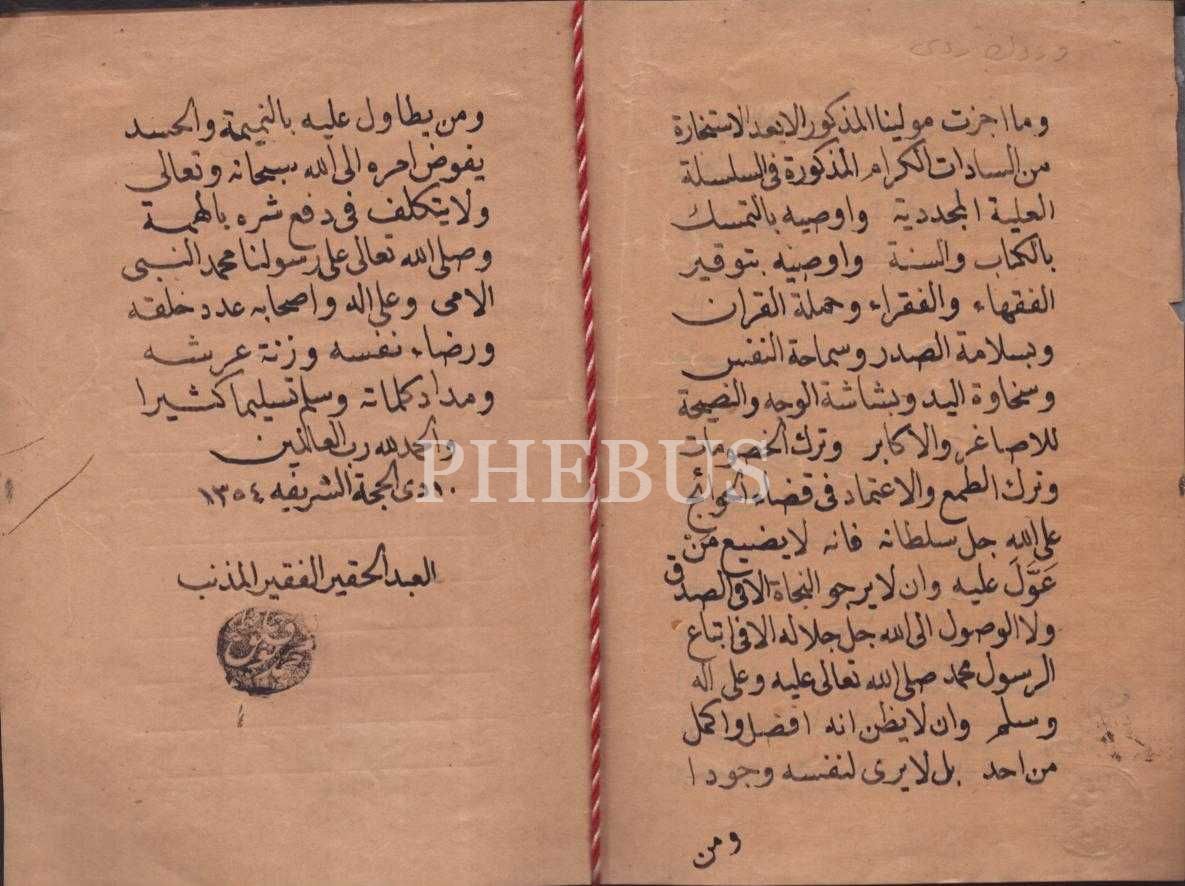 وما اجزت مولينا المذكور الا بعد الاستخارة
من السادات الكرام المذكورة فى السلسلة
العلية المجددية واوصيه بالتمسك
بالكتاب والسنة واوصيه بتوقير
الفقهاء والفقراء وحملة القران
وبسلامة الصدر وسماحة النفس
وسخاوة اليد وبشاشة الوجه والنصيحة
للاصاغر والاكابر وترك الخصومات
وترك الطمع والاعتماد فى قضاء الحوائج
على الله جل سلطانه فانه لا يضيع من
عَوَّلَ عليه وان لا يرجو النجاة الا فى الصدق
ولا الوصول الى الله جل جلاله الا فى اتباع
الرسول محمد صلى الله تعالى عليه وعلى اله
وسلم وان لا يظن انه افضل واكمل
من احد بل لا يرى لنفسه وجودا
ومن
ومن يطاول عليه بالنميمة والحسد
يفوض امره الى الله سبحانه وتعالى
ولا يتكلف فى دفع شره بالهمة
وصلى الله تعالى على رسولنا محمد النبى
الامى وعلى اله واصحابه عدد خلقه
ورضاء نفسه وزنة عرشه
ومداد كلماته وسلم تسليما كثيرا
والحمد لله رب العالمين
١٠ ذى الحجة الشريفه ١٣٥٤
العبد الحقير الفقير المذنب
PHEBUS